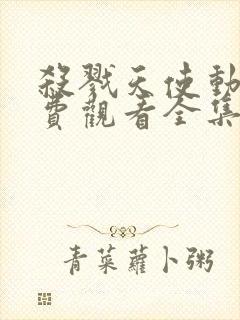 殺戮天使動
費觀看全集
青菜蘿卜粥